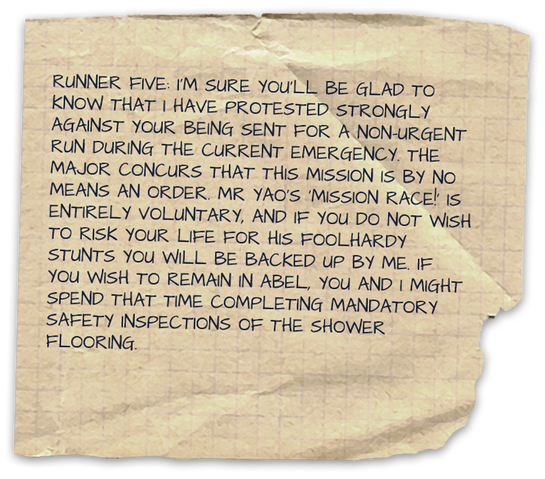 RUNNER FIVE: I'M SURE YOU'LL BE GLAD TO
KNOW THAT I HAVE PROTESTED STRONGLY
AGAINST YOUR BEING SENT FOR A NON-URGENT
RUN DURING THE CURRENT EMERGENCY. THE
MAJOR CONCURS THAT THIS MISSION IS BY NO
MEANS AN ORDER. MR YAO'S 'MISSION RACE!' IS
ENTIRELY VOLUNTARY, AND IF YOU DO NOT WISH
TO RISK YOUR LIFE FOR HIS FOOLHARDY
STUNTS YOU WILL BE BACKED UP BY ME. IF
YOU WISH TO REMAIN IN ABEL, YOU AND I MIGHT
SPEND THAT TIME COMPLETING MANDATORY
SAFETY INSPECTIONS OF THE SHOWER
FLOORING.